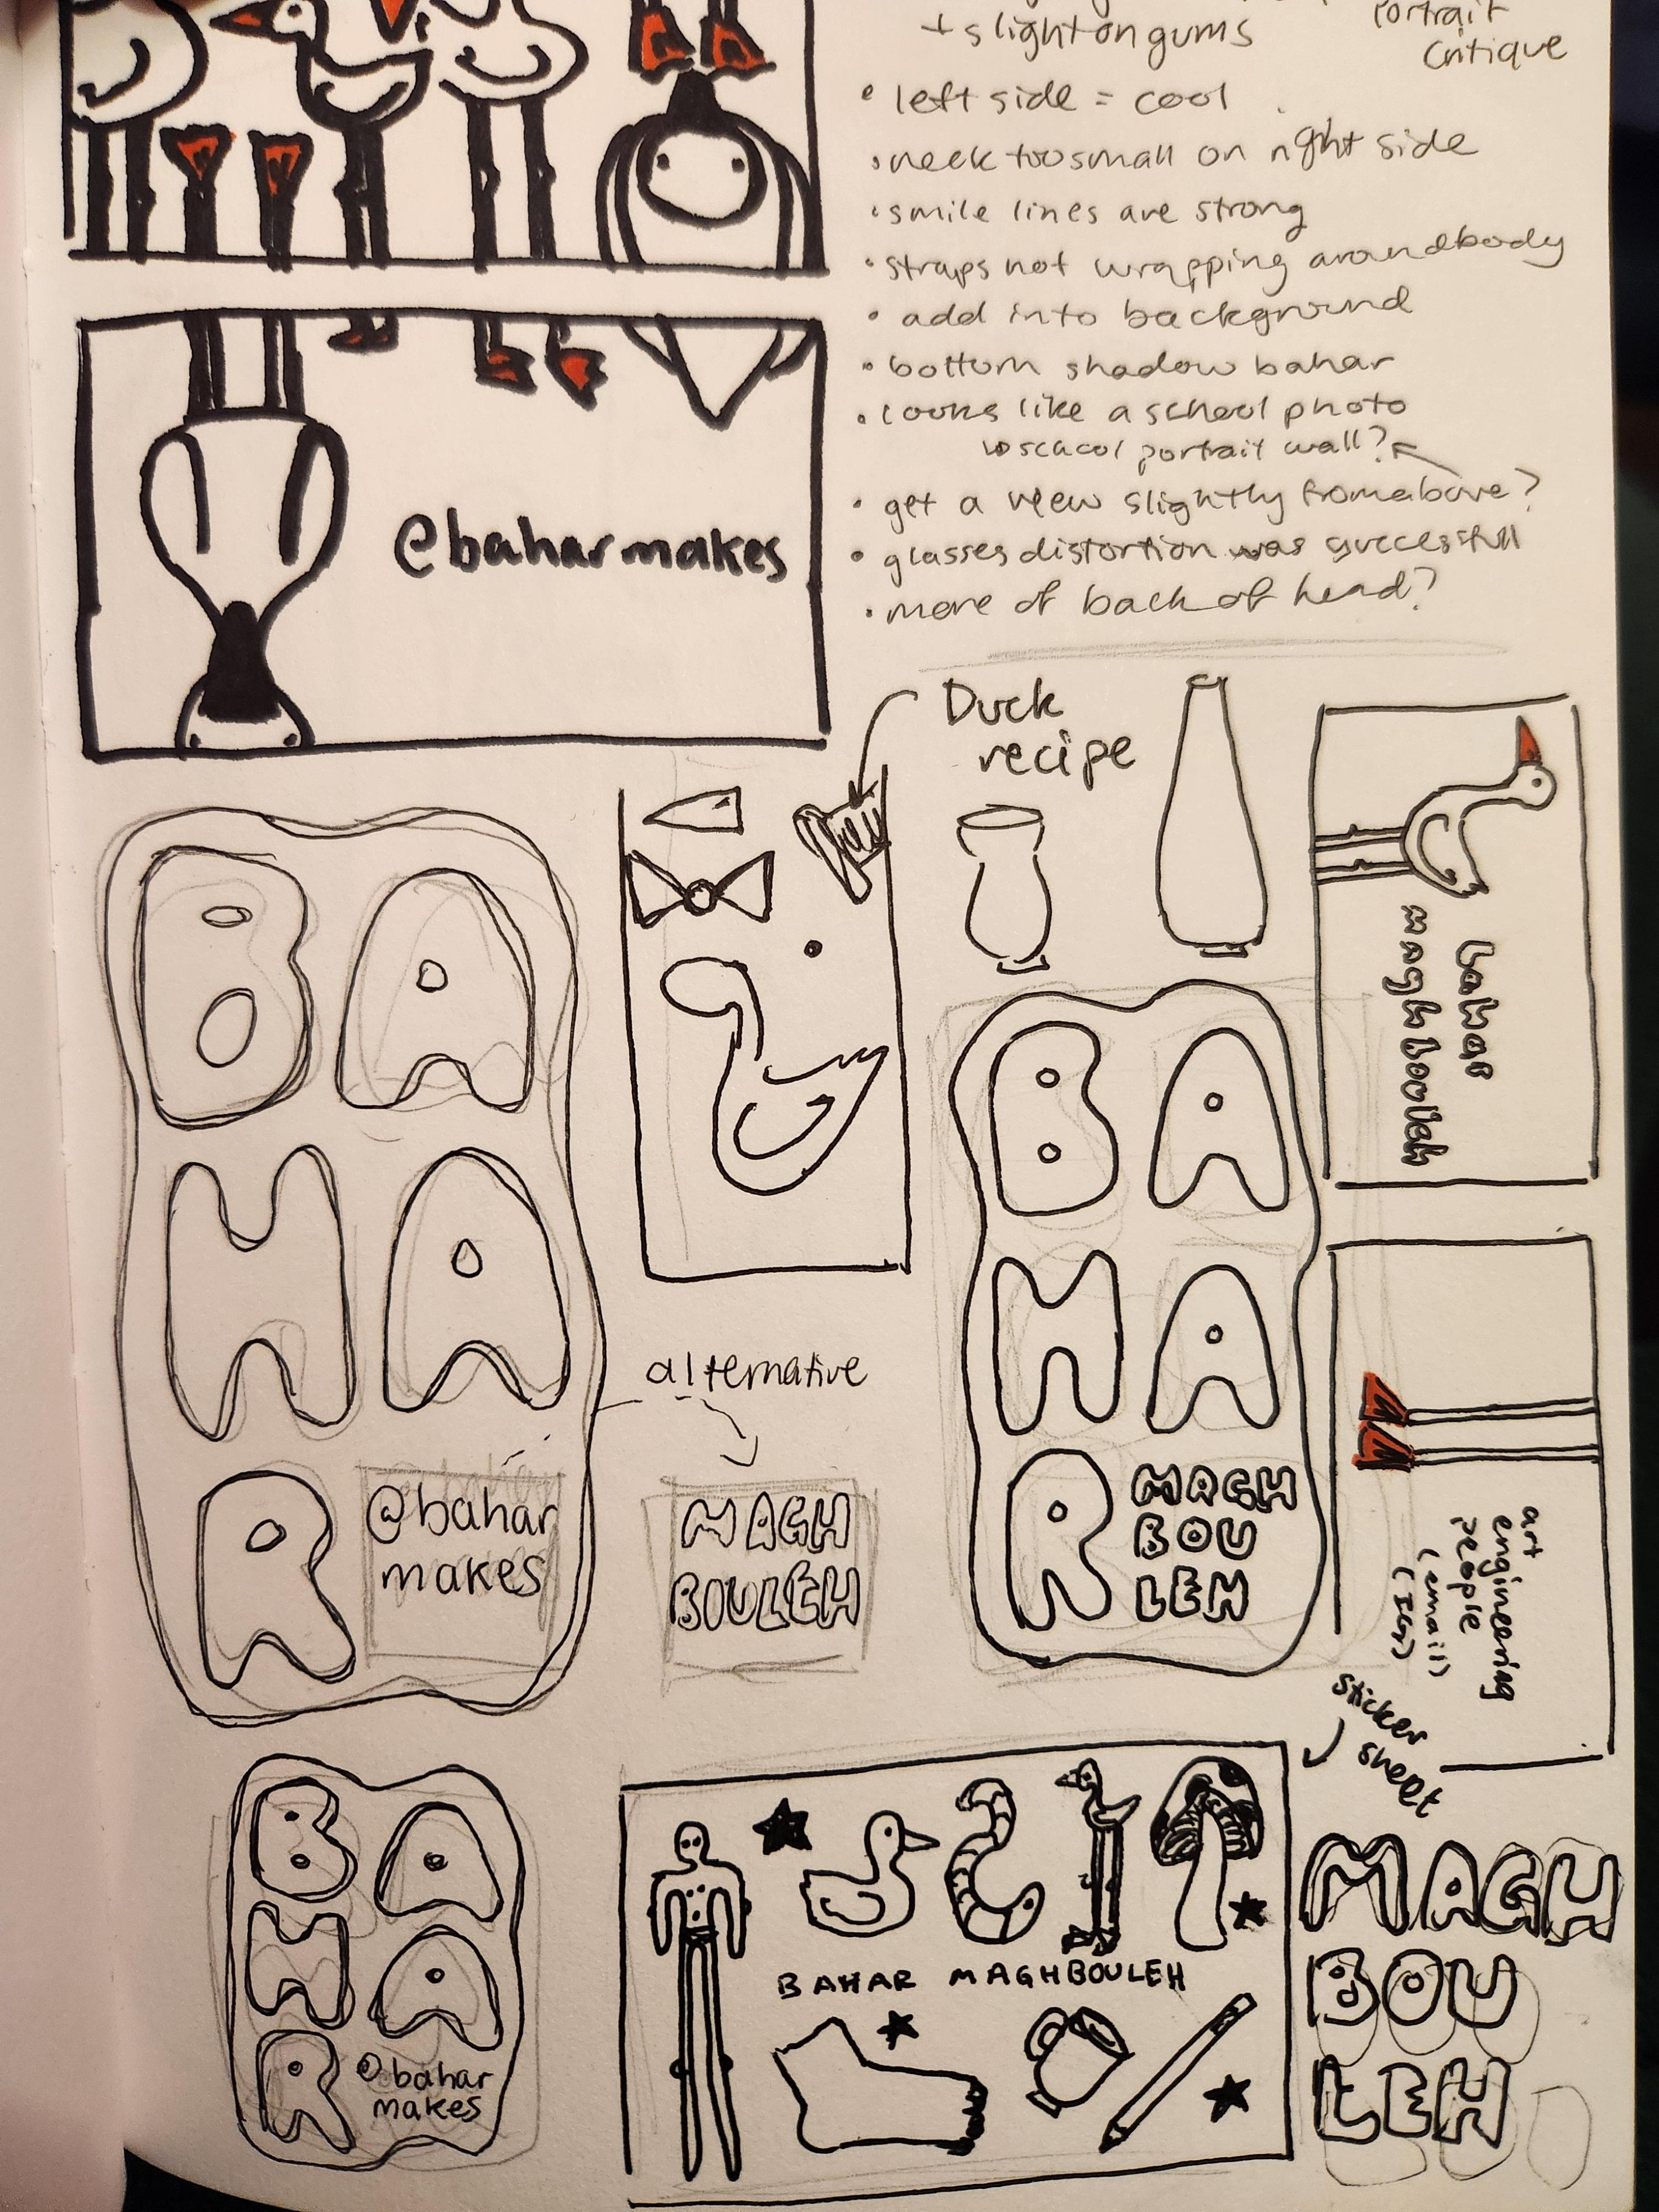 + slight on gums
Portrait
Critique
• left side = cool
• neck too small on right side
• smile lines are strong
• straps not wrapping around body
• add into background
• bottom shadow bahar
• looks like a school photo
portrait wall?
• get a view slightly from above?
• glasses distortion was successfull
• more of back of head?
@baharmakes
Duck
recipe
bahar
maghbouleh
BA
HA
R
@bahar
makes
alternative
MAGH
BOULEH
BA
HA
R
MAGH
BOU
LEH
art
engineering
people
(email)
(IG)
sticker
sheet
BA
HA
R
@bahar
makes
BAHAR MAGHBOULEH
MAGH
BOU
LEH